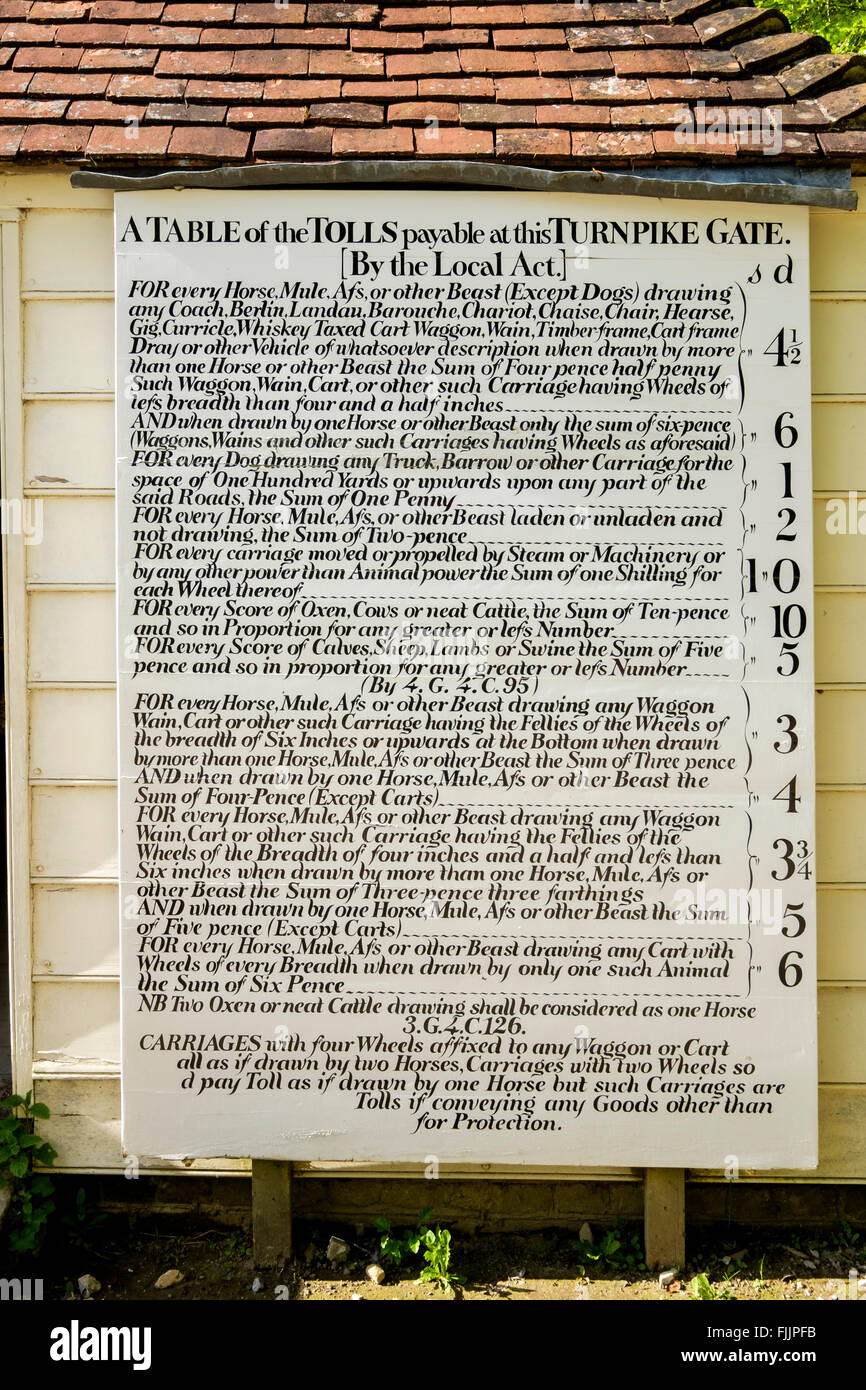 A TABLE of the TOLLS payable at this TURNPIKE GATE.
[By the Local Act.]
s d
FOR every Horse, Mule, Aſs, or other Beast (Except Dogs) drawing
any Coach, Berlin, Landau, Barouche, Chariot, Chaise, Chair, Hearse,
Gig, Curricle, Whiskey Taxed Cart Waggon, Wain, Timber-frame, Cart frame
Dray or other Vehicle of whatsoever description when drawn by more
than one Horse or other Beast the Sum of Four pence half penny
Such Waggon, Wain, Cart, or other such Carriage having Wheels of
leſs breadth than four and a half inches
" 4½
AND when drawn by one Horse or other Beast only the sum of six-pence
(Waggons, Wains and other such Carriages having Wheels as aforesaid)
" 6
FOR every Dog drawing any Truck, Barrow or other Carriage for the
space of One Hundred Yards or upwards upon any part of the
said Roads, the Sum of One Penny
" 1
FOR every Horse, Mule, Aſs, or other Beast laden or unladen and
not drawing, the Sum of Two-pence
" 2
FOR every carriage moved or propelled by Steam or Machinery or
by any other power than Animal power the Sum of one Shilling for
each Wheel thereof
1 " 0
FOR every Score of Oxen, Cows or neat Cattle, the Sum of Ten-pence
and so in Proportion for any greater or leſs Number
" 10
FOR every Score of Calves, Sheep, Lambs or Swine the Sum of Five
pence and so in proportion for any greater or leſs Number
" 5
(By 4. G. 4. C. 95)
FOR every Horse, Mule, Aſs or other Beast drawing any Waggon
Wain, Cart or other such Carriage having the Fellies of the Wheels of
the breadth of Six Inches or upwards at the Bottom when drawn
by more than one Horse, Mule, Aſs or other Beast the Sum of Three pence
" 3
AND when drawn by one Horse, Mule, Aſs or other Beast the
Sum of Four-Pence (Except Carts)
" 4
FOR every Horse, Mule, Aſs or other Beast drawing any Waggon
Wain, Cart or other such Carriage having the Fellies of the
Wheels of the Breadth of four inches and a half and leſs than
Six inches when drawn by more than one Horse, Mule, Aſs or
other Beast the Sum of Three-pence three farthings
" 3¾
AND when drawn by one Horse, Mule, Aſs or other Beast the Sum
of Five pence (Except Carts)
" 5
FOR every Horse, Mule, Aſs or other Beast drawing any Cart with
Wheels of every Breadth when drawn by only one such Animal
the Sum of Six Pence
" 6
NB Two Oxen or neat Cattle drawing shall be considered as one Horse
3. G. 4. C. 126.
CARRIAGES with four Wheels affixed to any Waggon or Cart
all as if drawn by two Horses, Carriages with two Wheels so
d pay Toll as if drawn by one Horse but such Carriages are
Tolls if conveying any Goods other than
for Protection.
alamy
a
Image ID: FJJPFB
www.alamy.com